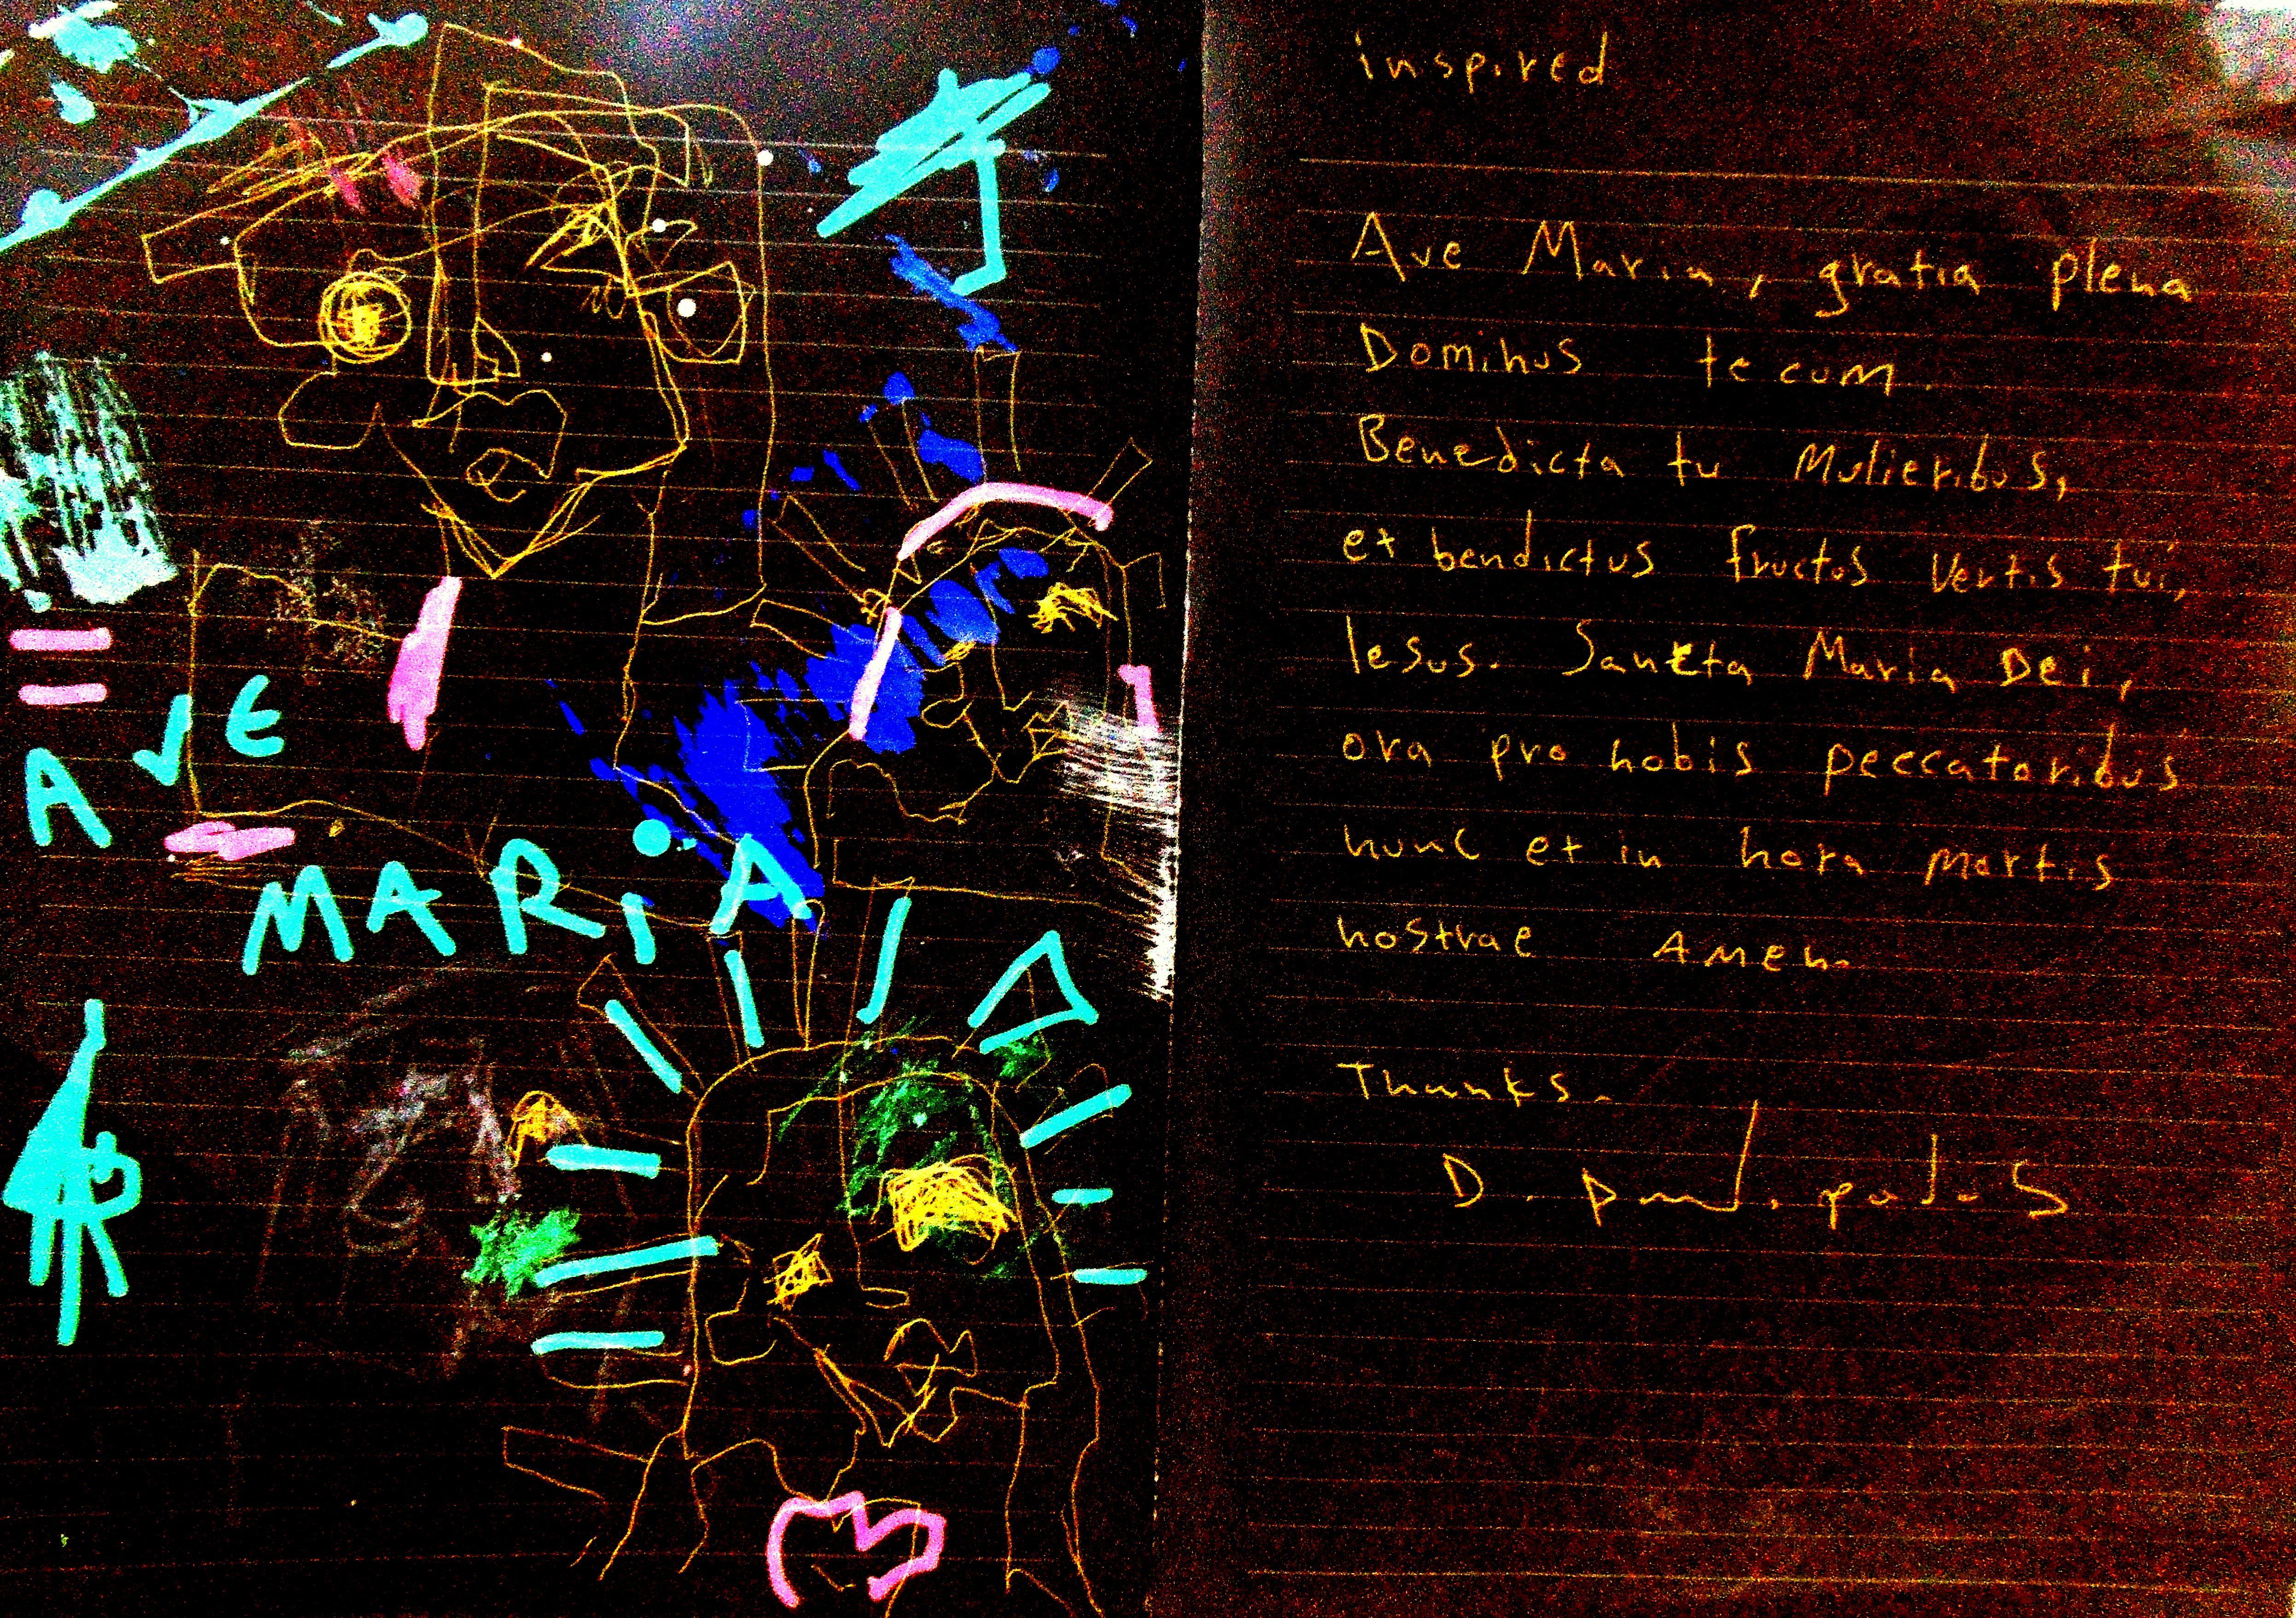 AVE
MARiA
inspired
Ave Maria, gratia plena
Dominus tecum.
Benedicta tu Mulieribus,
et bendictus fructus Vertis tui,
Iesus. Sancta Maria Dei,
ora pro nobis peccatoribus
nunc et in hora mortis
nostrae Amen.
Thanks.
D.